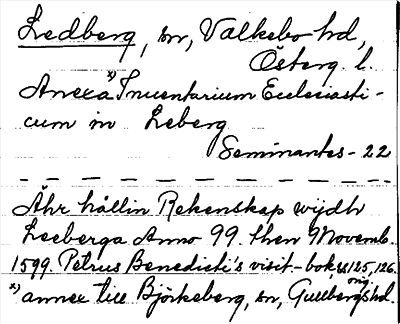 Ledberg, sn, Valkebo hd,
Österg. l.
Anexa x) Inuentarium Ecclesiasti-
cum in Leberg
Seminantes - 22
Åhr hållin Rekenskap wijdh
Leeberga Anno 99. then 9 Novemb.
1599. Petrus Benedicti's visit-bok, s 125, 126.
x) annex till Björkeberg, sn, Gullbergs hd.